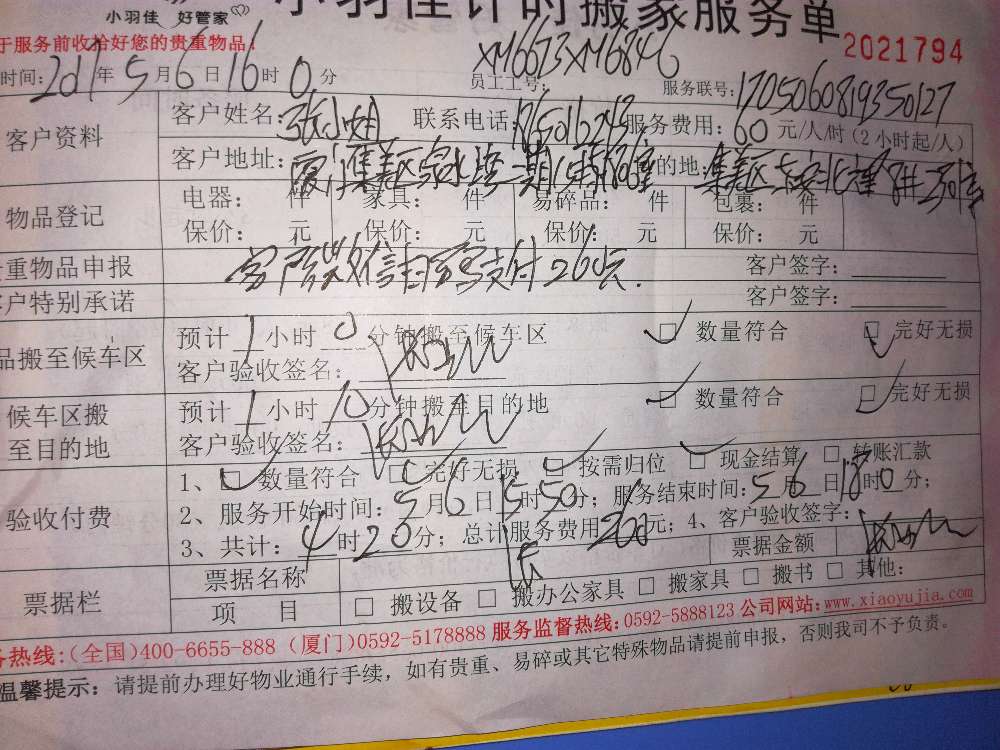 小羽佳 好管家
小羽佳计时搬家服务单
于服务前收拾好您的贵重物品! 2021794
时间: 2017年5月6日16时0分 员工工号: XM6613XM6846 服务联号: 1705060819350127
客户资料 客户姓名: 张小姐 联系电话: 服务费用: 60元/人/时(2小时起/人)
客户地址: 集美区 的地: 集美区
物品登记 电器: 件 家具: 件 易碎品: 件 包裹: 件
保价: 元 保价: 元 保价: 元 保价: 元
贵重物品申报 客户 微信 支付260元. 客户签字:
客户特别承诺 客户签字:
品搬至候车区 预计1小时0分钟搬至候车区 ☑ 数量符合 ☑ 完好无损
客户验收签名:
候车区搬至目的地 预计1小时10分钟搬至目的地 ☑ 数量符合 ☑ 完好无损
客户验收签名:
验收付费 1、☑ 数量符合 ☑ 完好无损 ☑ 按需归位 ☑ 现金结算 □ 转账汇款
2、服务开始时间: 5月6日15时50分; 服务结束时间: 5月6日18时0分;
3、共计: 4时20分; 总计服务费用260元; 4、客户验收签字:
票据栏 票据名称 票据金额
项 目 □ 搬设备 □ 搬办公家具 □ 搬家具 □ 搬书 □ 其他:
务热线:(全国)400-6655-888 (厦门)0592-5178888 服务监督热线:0592-5888123 公司网站:www.xiaoyujia.com
温馨提示: 请提前办理好物业通行手续，如有贵重、易碎或其它特殊物品请提前申报，否则我司不予负责。